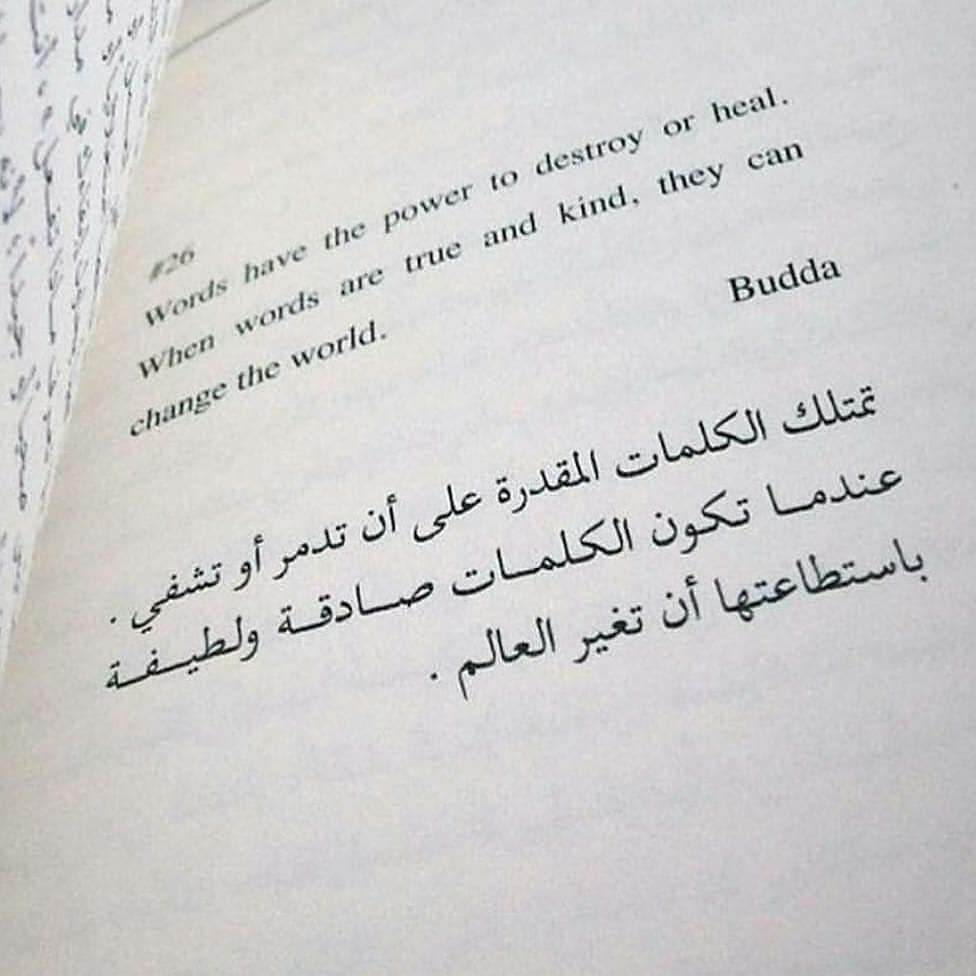 #26
Words have the power to destroy or heal.
When words are true and kind, they can
change the world.
Budda
تمتلك الكلمات المقدرة على أن تدمر أو تشفي .
عندمـا تكون الكلمـات صـادقـة ولطيـفـة
باستطاعتها أن تغير العالم .